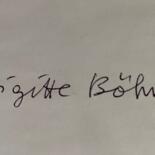 igitte Böh